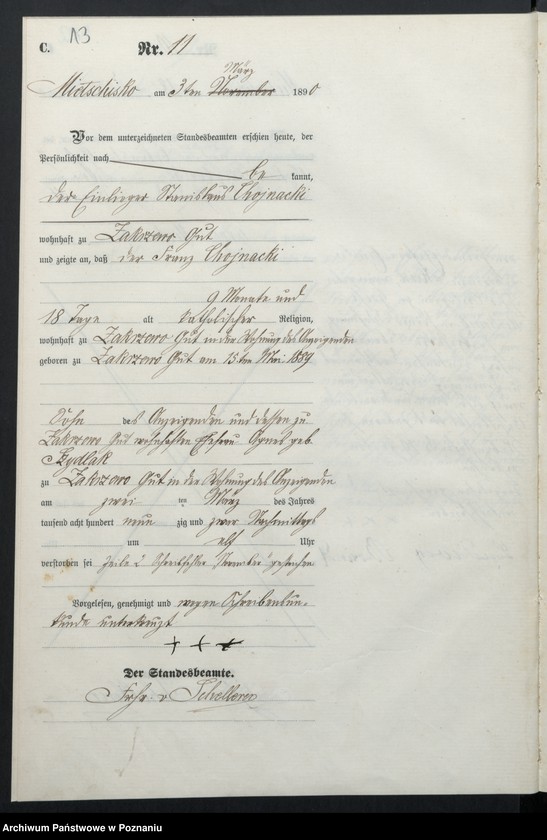 C. 13 Nr. 11
März
Mietschisko am 3ten November 1890
Vor dem unterzeichneten Standesbeamten erschien heute, der
Persönlichkeit nach
be kannt,
der Einlieger Stanislaus Chojnacki
wohnhaft zu Zakrzewo Gut
und zeigte an, daß der Franz Chojnacki
9 Monate und
18 Tage alt katholischer Religion,
wohnhaft zu Zakrzewo Gut in der Wohnung des Anzeigenden
geboren zu Zakrzewo Gut am 15ten Mai 1889
Sohn des Anzeigenden und dessen zu
Zakrzewo Gut wohnhaften Ehefrau Agnes geb.
zu Zakrzewo Gut in der Wohnung des Anzeigenden
am zwei ten März des Jahres
tausend acht hundert neun zig und zwar Nachmittags
um elf Uhr
verstorben sei Zeile 2 Schreibfehler "November" gestrichen
Vorgelesen, genehmigt und wegen Schreibensun-
kunde unterkreuzt
+ + +
Der Standesbeamte.
Frhr. v.
Archiwum Państwowe w Poznaniu